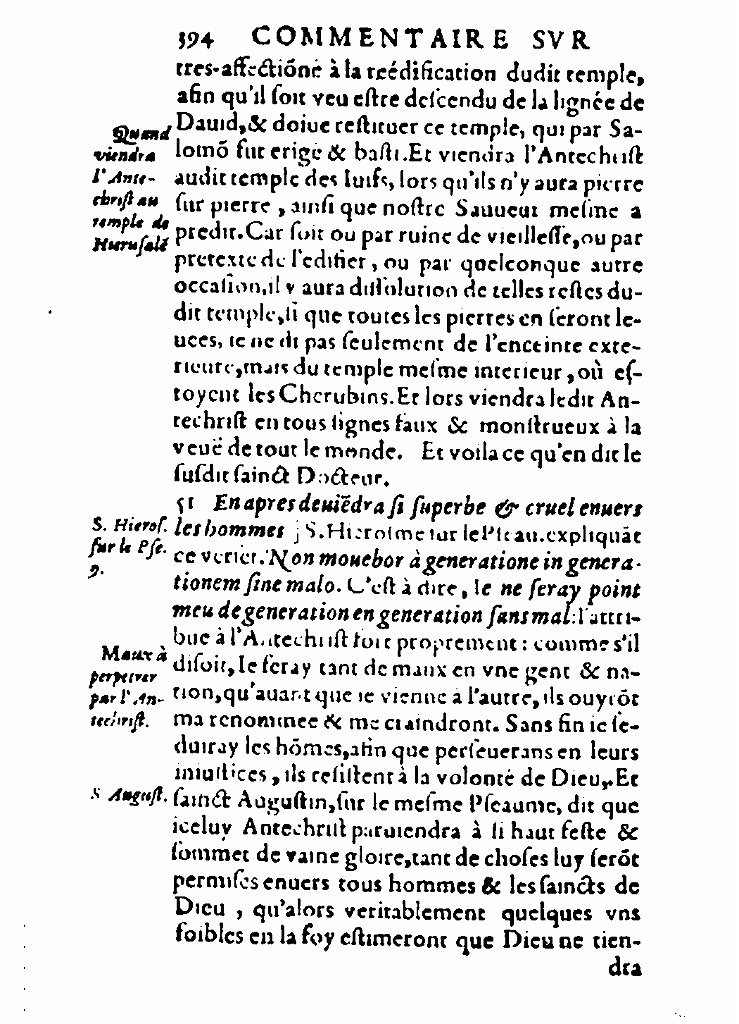 394 COMMENTAIRE SVR
tres-affectiōné à la reédification dudit temple,
afin qu'il soit veu estre descendu de la lignée de
Dauid,& doiue restituer ce temple, qui par Sa-
lomō fut erigé & basti.Et viendra l'Antechrist
audit temple des Iuifs, lors qu'ils n'y aura pierre
sur pierre , ainsi que nostre Sauueur mesme a
predit.Car soit ou par ruine de vieillesse,ou par
pretexte de l'edifier , ou par quelconque autre
occasion,il y aura dissolution de telles restes du-
dit temple,si que toutes les pierres en seront le-
uees, ie ne di pas seulement de l'enceinte exte-
rieure,mais du temple mesme interieur ,où es-
toyent les Cherubins.Et lors viendra ledit An-
techrist en tous signes faux & monstrueux à la
veuë de tout le monde. Et voila ce qu'en dit le
susdit sainct Docteur.
51 En apres deuiēdra si superbe & cruel enuers
les hommes ] S.Hierosme sur le Pseau.expliquāt
ce verset.Non mouebor à generatione in genera-
tionem sine malo. C'est à dire, Ie ne seray point
meu de generation en generation sans mal:l'attri-
bue à l'Antechrist fort proprement : comme s'il
disoit, Ie feray tant de maux en vne gent & na-
tion,qu'auant que ie vienne à l'autre, ils ouyrōt
ma renommee & me craindront. Sans fin ie se-
duiray les hōmes,afin que perseuerans en leurs
iniustices , ils resistent à la volonté de Dieu,.Et
sainct Augustin,sur le mesme Pseaume, dit que
iceluy Antechrist paruiendra à si haut feste &
sommet de vaine gloire,tant de choses luy serōt
permises enuers tous hommes & les saincts de
Dieu , qu'alors veritablement quelques vns
foibles en la foy estimeront que Dieu ne tien-
dra
Quand
viendra
l'Ante-
christ au
temple de
Hierusalē
S. Hieros.
sur le Pse.
9.
Maux à
perpetrer
par l'An-
techrist.
S August.